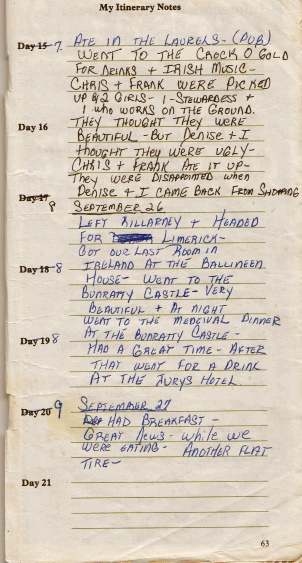 My Itinerary Notes
Day 15 7. ATE IN THE LAURELS - (PUB)
WENT TO THE CROCK O'GOLD
FOR DRINKS + IRISH MUSIC -
CHRIS + FRANK WERE PICKED
UP by 2 GIRLS - 1 - STEWARDESS +
1 WHO WORKS ON THE GROUND.
Day 16 THEY THOUGHT THEY WERE
BEAUTIFUL - BUT DENISE + I
THOUGHT THEY WERE UGLY -
CHRIS + FRANK ATE IT UP -
They WERE DISAPPOINTED when
Day 17 DENISE + I CAME BACK FROM SHOPPING
8 SEPTEMBER 26
LEFT KILLARNEY + HEADED
FOR LIMERICK -
GOT OUR LAST ROOM IN
Day 18 - 8 IRELAND AT THE BALLINEEN
HOUSE - WENT TO THE
BUNRATTY CASTLE - VERY
BEAUTIFUL + AT NIGHT
WENT TO THE MEDEIVAL DINNER
Day 19 8 AT THE BUNRATTY CASTLE -
HAD A GREAT TIME - AFTER
THAT WENT FOR A DRINK
AT THE JURYS HOTEL.
Day 20 9 SEPTEMBER 27
HAD BREAKFAST -
GREAT News - while we
WERE EATING - ANOTHER FLAT
TIRE -
Day 21
63